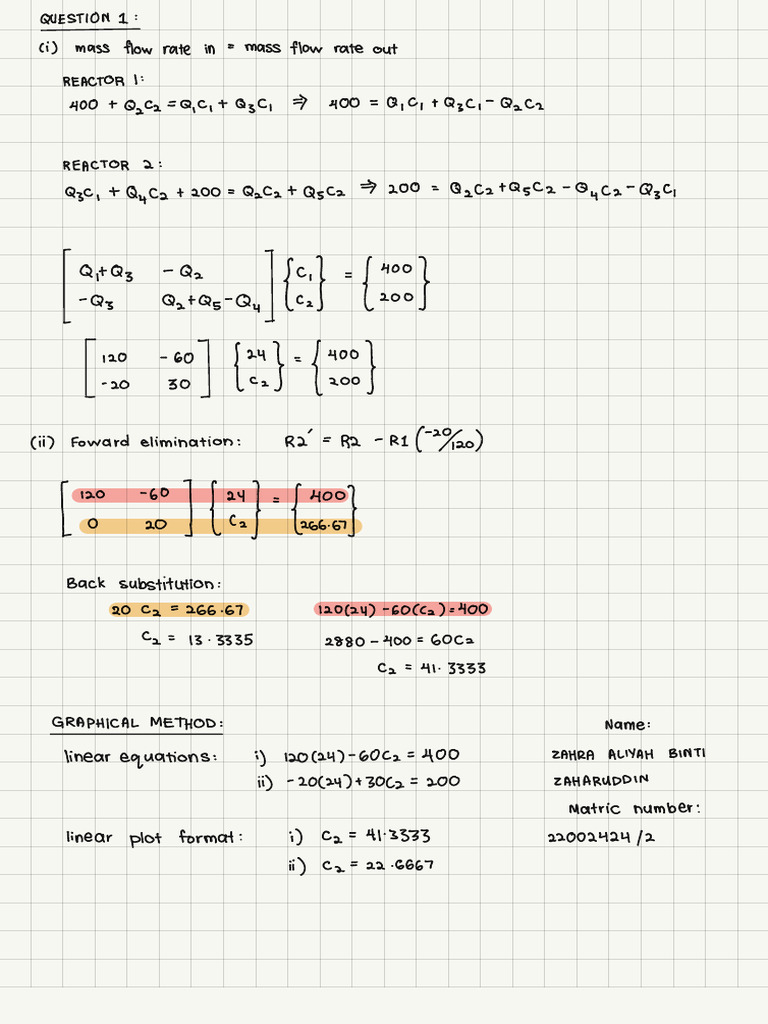 QUESTION 1:
(i) mass flow rate in = mass flow rate out
REACTOR 1:
400 + Q₂C₂ = Q₁C₁ + Q₃C₁ ⇒ 400 = Q₁C₁ + Q₃C₁ - Q₂C₂
REACTOR 2:
Q₃C₁ + Q₄C₂ + 200 = Q₂C₂ + Q₅C₂ ⇒ 200 = Q₂C₂ + Q₅C₂ - Q₄C₂ - Q₃C₁
[ Q₁+Q₃ -Q₂ ] { C₁ } = { 400 }
[ -Q₃ Q₂+Q₅-Q₄ ] { C₂ } { 200 }
[ 120 -60 ] { 24 } = { 400 }
[ -20 30 ] { C₂ } { 200 }
(ii) Foward elimination: R2' = R2 - R1 (-20/120)
[ 120 -60 ] { 24 } = { 400 }
[ 0 20 ] { C₂ } { 266.67 }
Back substitution:
20 C₂ = 266.67 120(24) - 60(C₂) = 400
C₂ = 13.3335 2880 - 400 = 60C₂
C₂ = 41.3333
GRAPHICAL METHOD:
linear equations: i) 120(24) - 60C₂ = 400
ii) -20(24) + 30C₂ = 200
linear plot format: i) C₂ = 41.3333
ii) C₂ = 22.6667
Name:
ZAHRA ALIYAH BINTI
ZAHARUDDIN
Matric number:
22002424/2